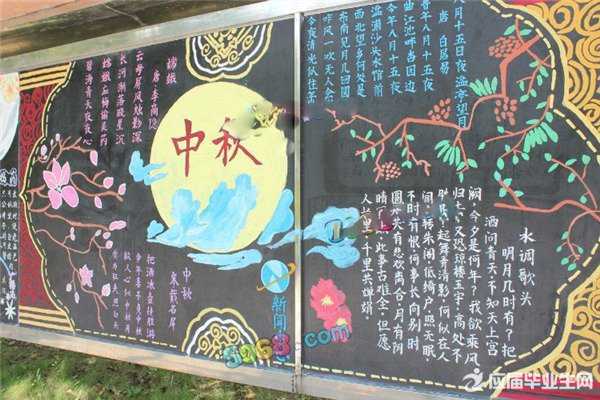 八月十五日夜湓亭望月
唐 白居易
昔年八月十五夜
曲江池畔杏园边
今年八月十五夜
湓浦沙头水馆前
西北望乡何处是
东南见月几回圆
昨风一吹无人会
今夜清光似往
水调歌头
明月几时有?把
酒问青天不知天上宫
阙,今夕是何年?我欲乘风
归去又恐琼楼玉宇,高处不
胜寒起舞弄清影,何似在人
间,转朱阁,低绮户,照无眠,
不时有恨何事长向别时
圆人有悲欢离合,月有阴
晴此事古难全,但愿
人长久千里共婵娟。
嫦娥
唐 李商隐
云母屏风烛影深
长河渐落晓星沉
嫦娥应悔偷灵药
碧海青天夜夜心
中秋
中秋
宋 戴石屏
把酒冰壶接胜游
今年喜不负中秋
故人心似中秋月
肯为狂夫照白头
新闻
5268.com
应届毕业生网